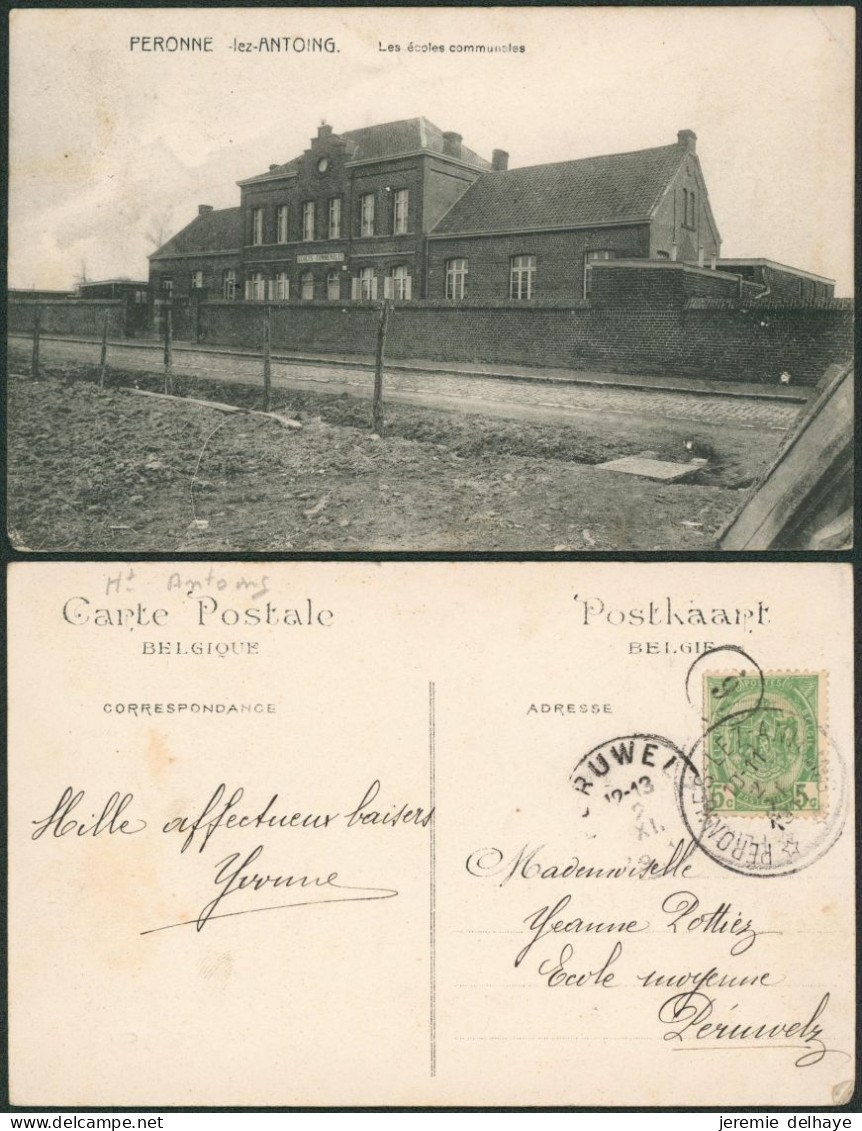 PERONNE -lez-ANTOING. Les écoles communales
ECOLES COMMUNALES
Ht Antoing
Carte Postale
BELGIQUE
Postkaart
BELGIE
CORRESPONDANCE
ADRESSE
5c 5c
12-13
XI
Mille affectueux baisers
Yvonne
Mademoiselle
Yeanne Pottiez
Ecole moyenne
Péruwelz
jeremie delhaye